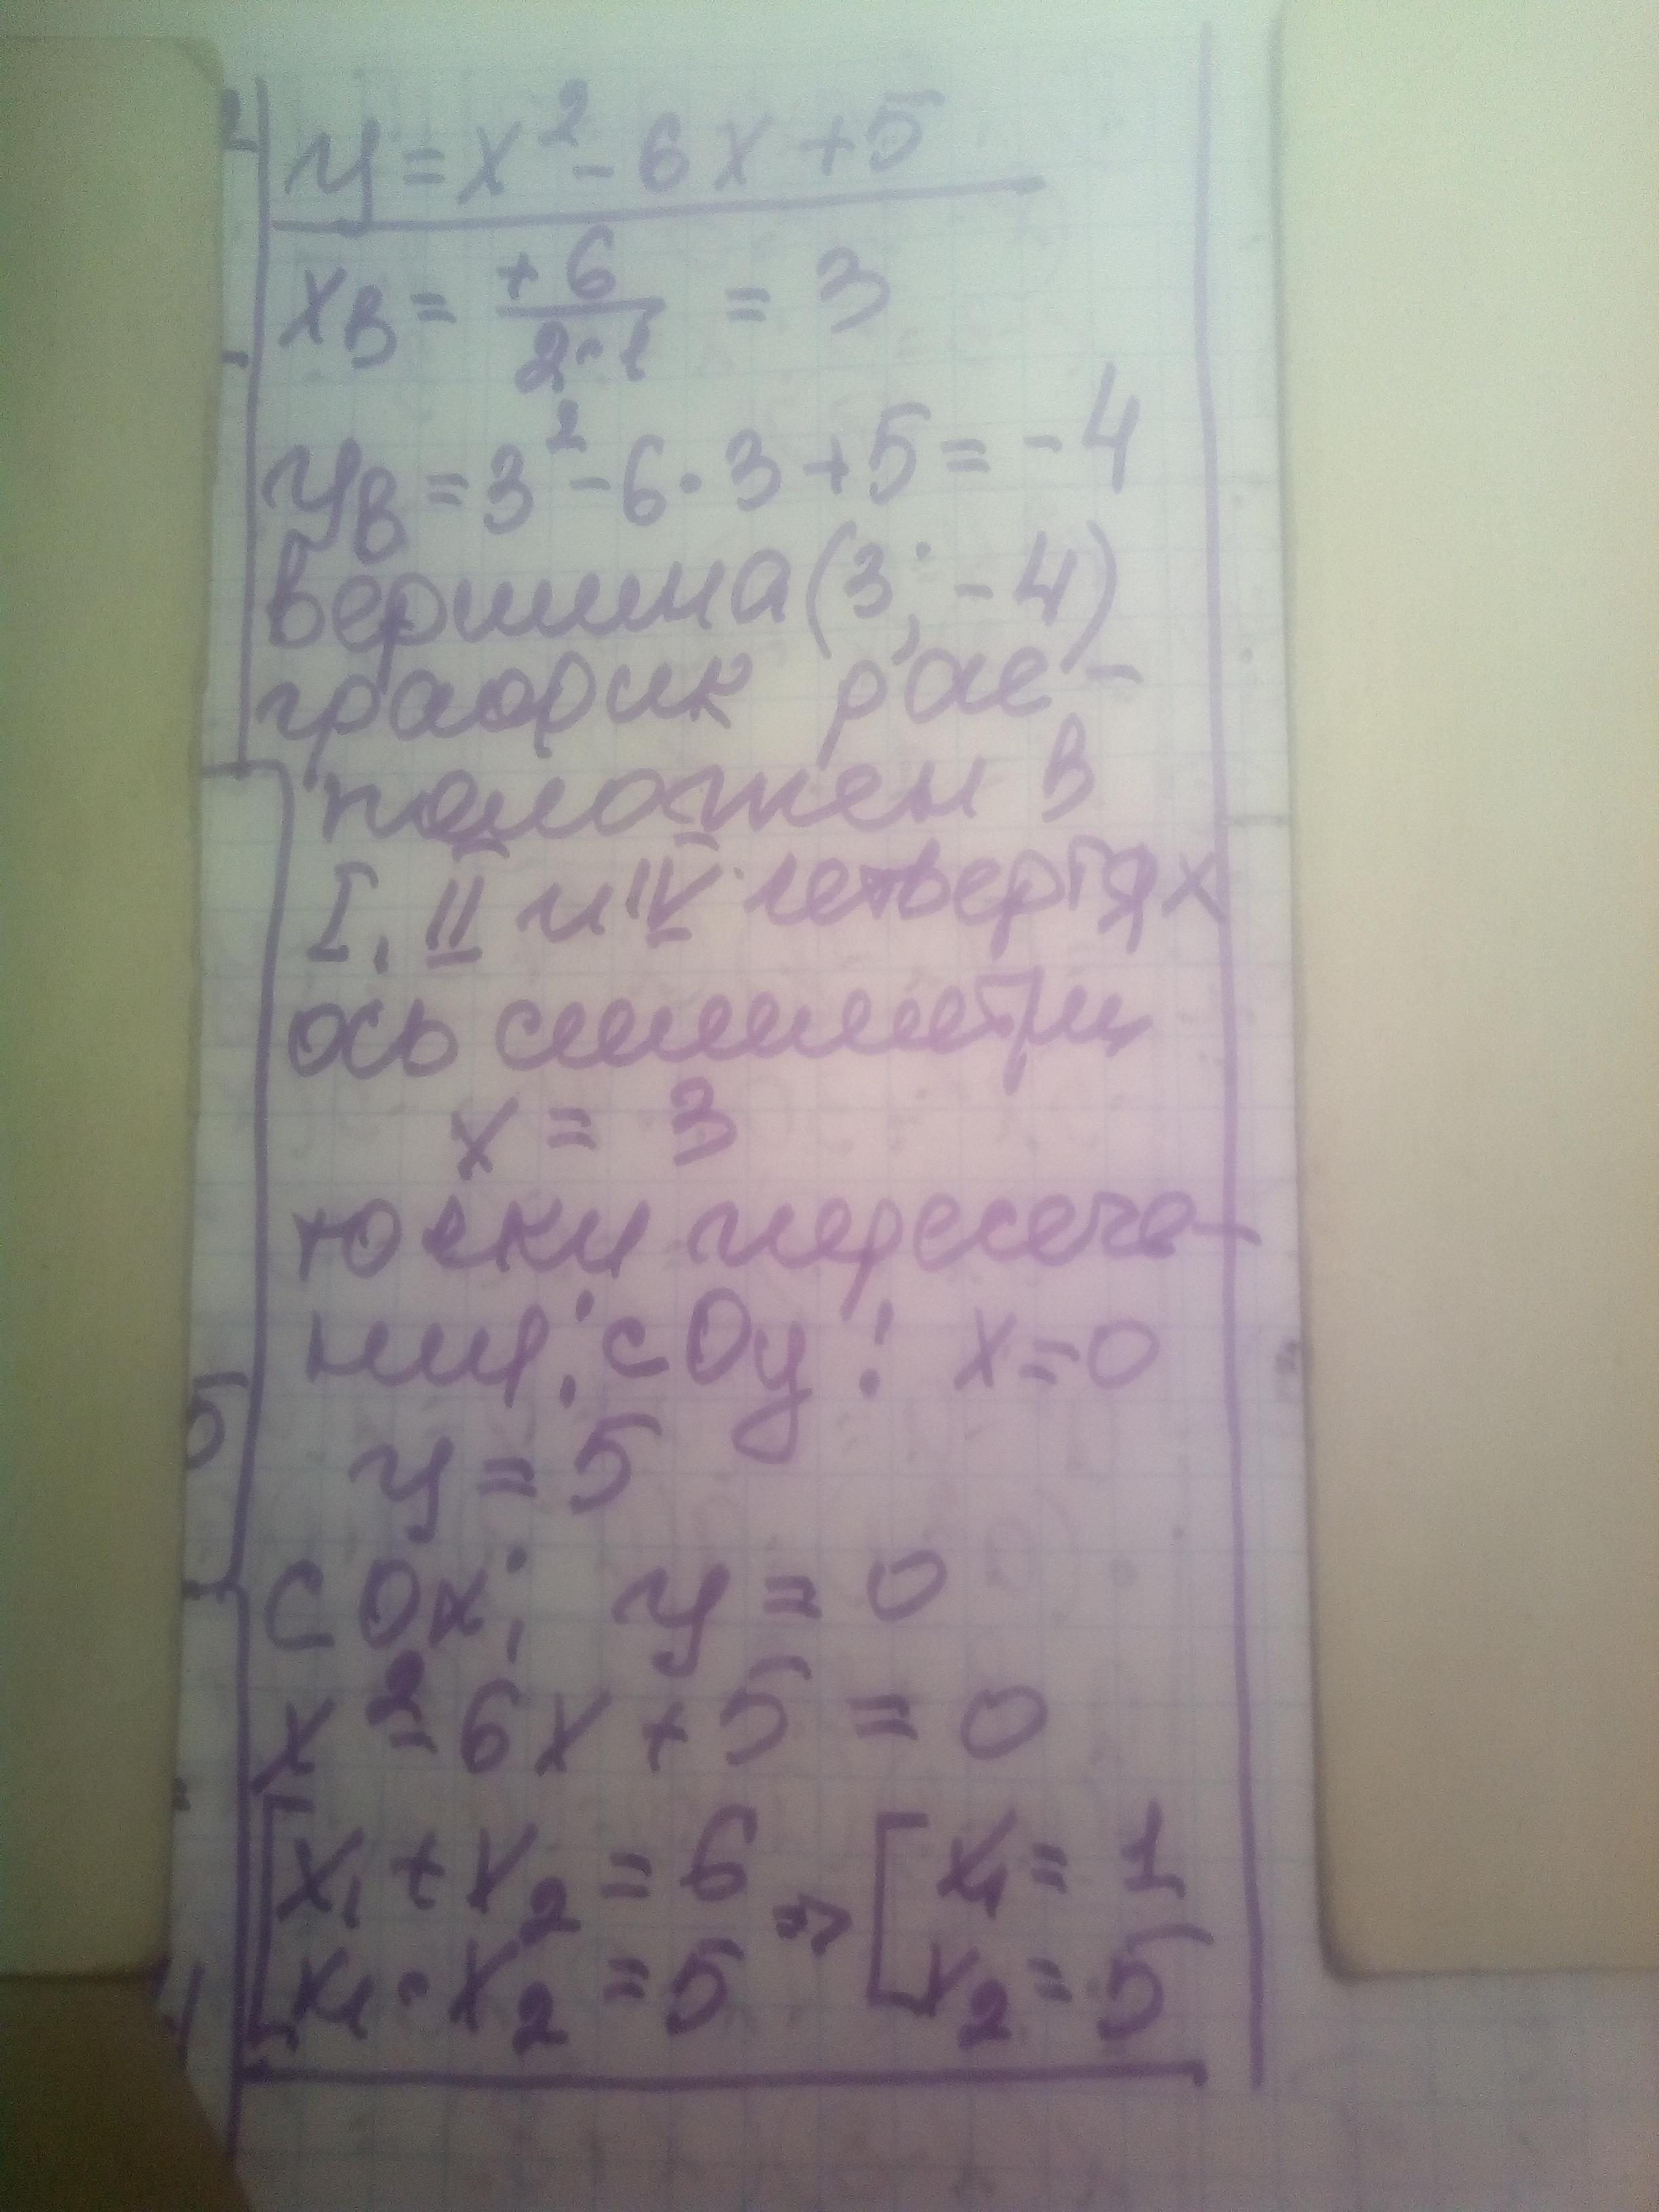 y = x² - 6x + 5
xв = +6/2·1 = 3
yв = 3² - 6·3 + 5 = -4
вершина (3; -4)
график рас-
положен в
I, II и IV четвертях
ось симметри
x = 3
точки пересече-
ния: с Oy: x = 0
y = 5
с Ox: y = 0
x² - 6x + 5 = 0
[x₁ + x₂ = 6 => [x₁ = 1
x₁ · x₂ = 5 x₂ = 5